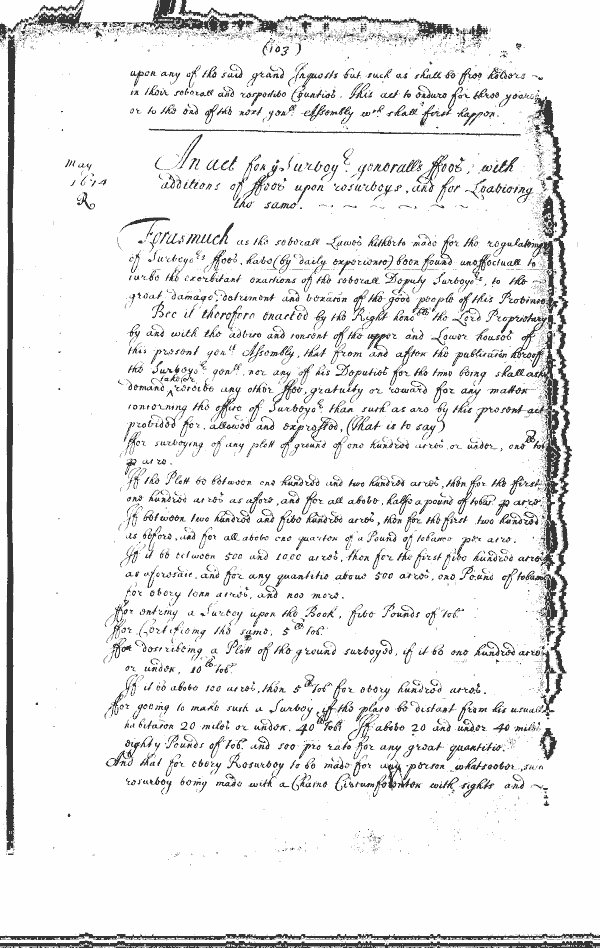 (103)
upon any of the said grand Inquests but such as shall be free holders
in their severall and respective Counties. This act to endure for three years
or to the end of the next genll Assembly wch shall first happen.
May
1674
R
An act for ye Surveyrs generalls ffees, with
additions of ffees upon resurveys, and for Leavieing
the same.
Forasmuch as the severall Lawes hitherto made for the regulateing
of Surveyrs ffees, have (by daily experience) been found uneffectuall to
curbe the exorbitant exactions of the severall Deputy Surveyrs, to the
great damage, detriment and vexacon of the good people of this Province
Bee it therefore enacted by the Right honble the Lord Proprietary
by and with the advice and consent of the upper and Lower houses of
this present genll Assembly, that from and after the publicacon hereof
the Surveyr genll, nor any of his Deputies for the time being shall aske
demand take or receive any other ffee, gratuity or reward for any matter
concerning the office of Surveyr than such as are by this present act
provided for, allowed and expressed, (that is to say)
ffor surveying of any plott of ground of one hundred acres or under, one lb tob
p acre.
If the Plott be between one hundred and two hundred acres, then for the first
one hundred acres as afore, and for all above, halfe a pound of tobac p acre
If between two hundred and five hundred acres, then for the first two hundred
as before, and for all above one quarter of a Pound of tobacco per acre.
If it be between 500 and 1000 acres, then for the first five hundred acres
as aforesaid, and for any quantitie above 500 acres, one Pound of tobacco
for every tenn acres, and noe more.
ffor entring a Survey upon the Book, five Pounds of tob.
ffor Certifieing the same, 5 lb tob.
ffor describeing a Plott of the ground surveyed, if it be one hundred acres
or under, 10 lb tob.
If it be above 100 acres, then 5 lb tob for every hundred acres.
ffor going to make such a Survey, if the place be distant from his usuall
habitacon 20 miles or under, 40 lb tob. If above 20 and under 40 miles
eighty Pounds of tob. and soe pro rato for any great quantitie.
And that for every Resurvey to be made for any person whatsoever, such
resurvey being made with a Chaine Circumferenter with sights and